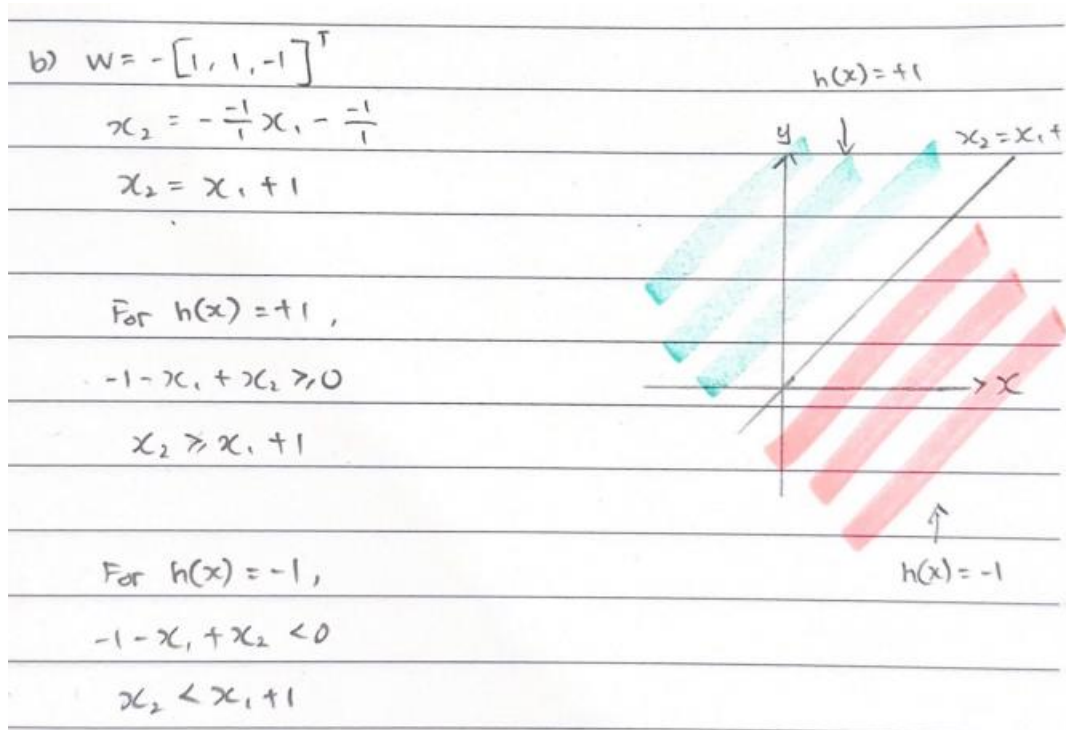 b) W = -[1, 1, -1]ᵀ
x₂ = - -1/1 x₁ - -1/1
x₂ = x₁ + 1
For h(x) = +1,
-1 - x₁ + x₂ ≥ 0
x₂ ≥ x₁ + 1
For h(x) = -1,
-1 - x₁ + x₂ < 0
x₂ < x₁ + 1
h(x) = +1
y
x₂ = x₁ +
x
h(x) = -1